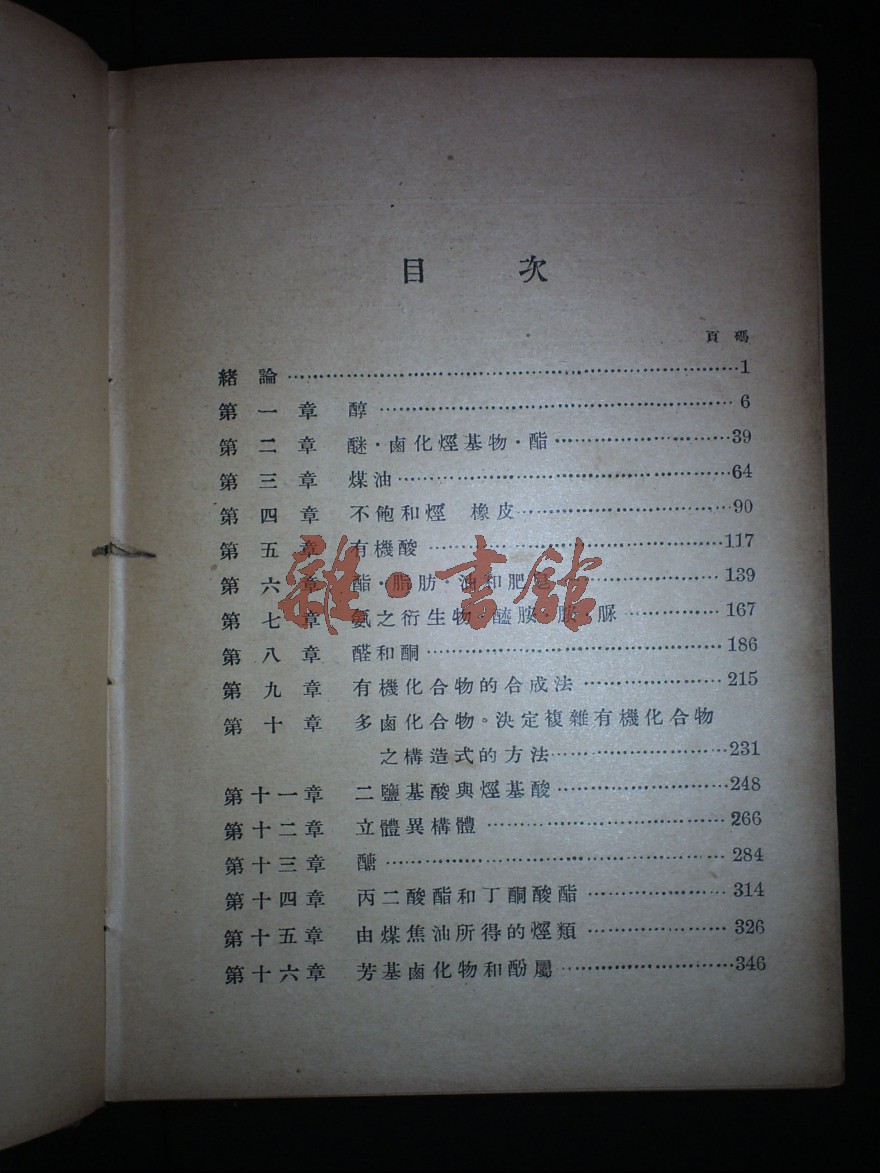 目 次
頁碼
緒論……1
第一章 醇……6
第二章 醚·鹵化烴基物·酯……39
第三章 煤油……64
第四章 不飽和烴 橡皮……90
第五章 有機酸……117
第六章 酯·脂肪·油和肥……139
第七章 氨之衍生物 醯胺 胺 脲……167
第八章 醛和酮……186
第九章 有機化合物的合成法……215
第十章 多鹵化合物。決定複雜有機化合物
之構造式的方法……231
第十一章 二鹽基酸與烴基酸……248
第十二章 立體異構體……266
第十三章 醣……284
第十四章 丙二酸酯和丁酮酸酯……314
第十五章 由煤焦油所得的烴類……326
第十六章 芳基鹵化物和酚屬……346
雜·書館